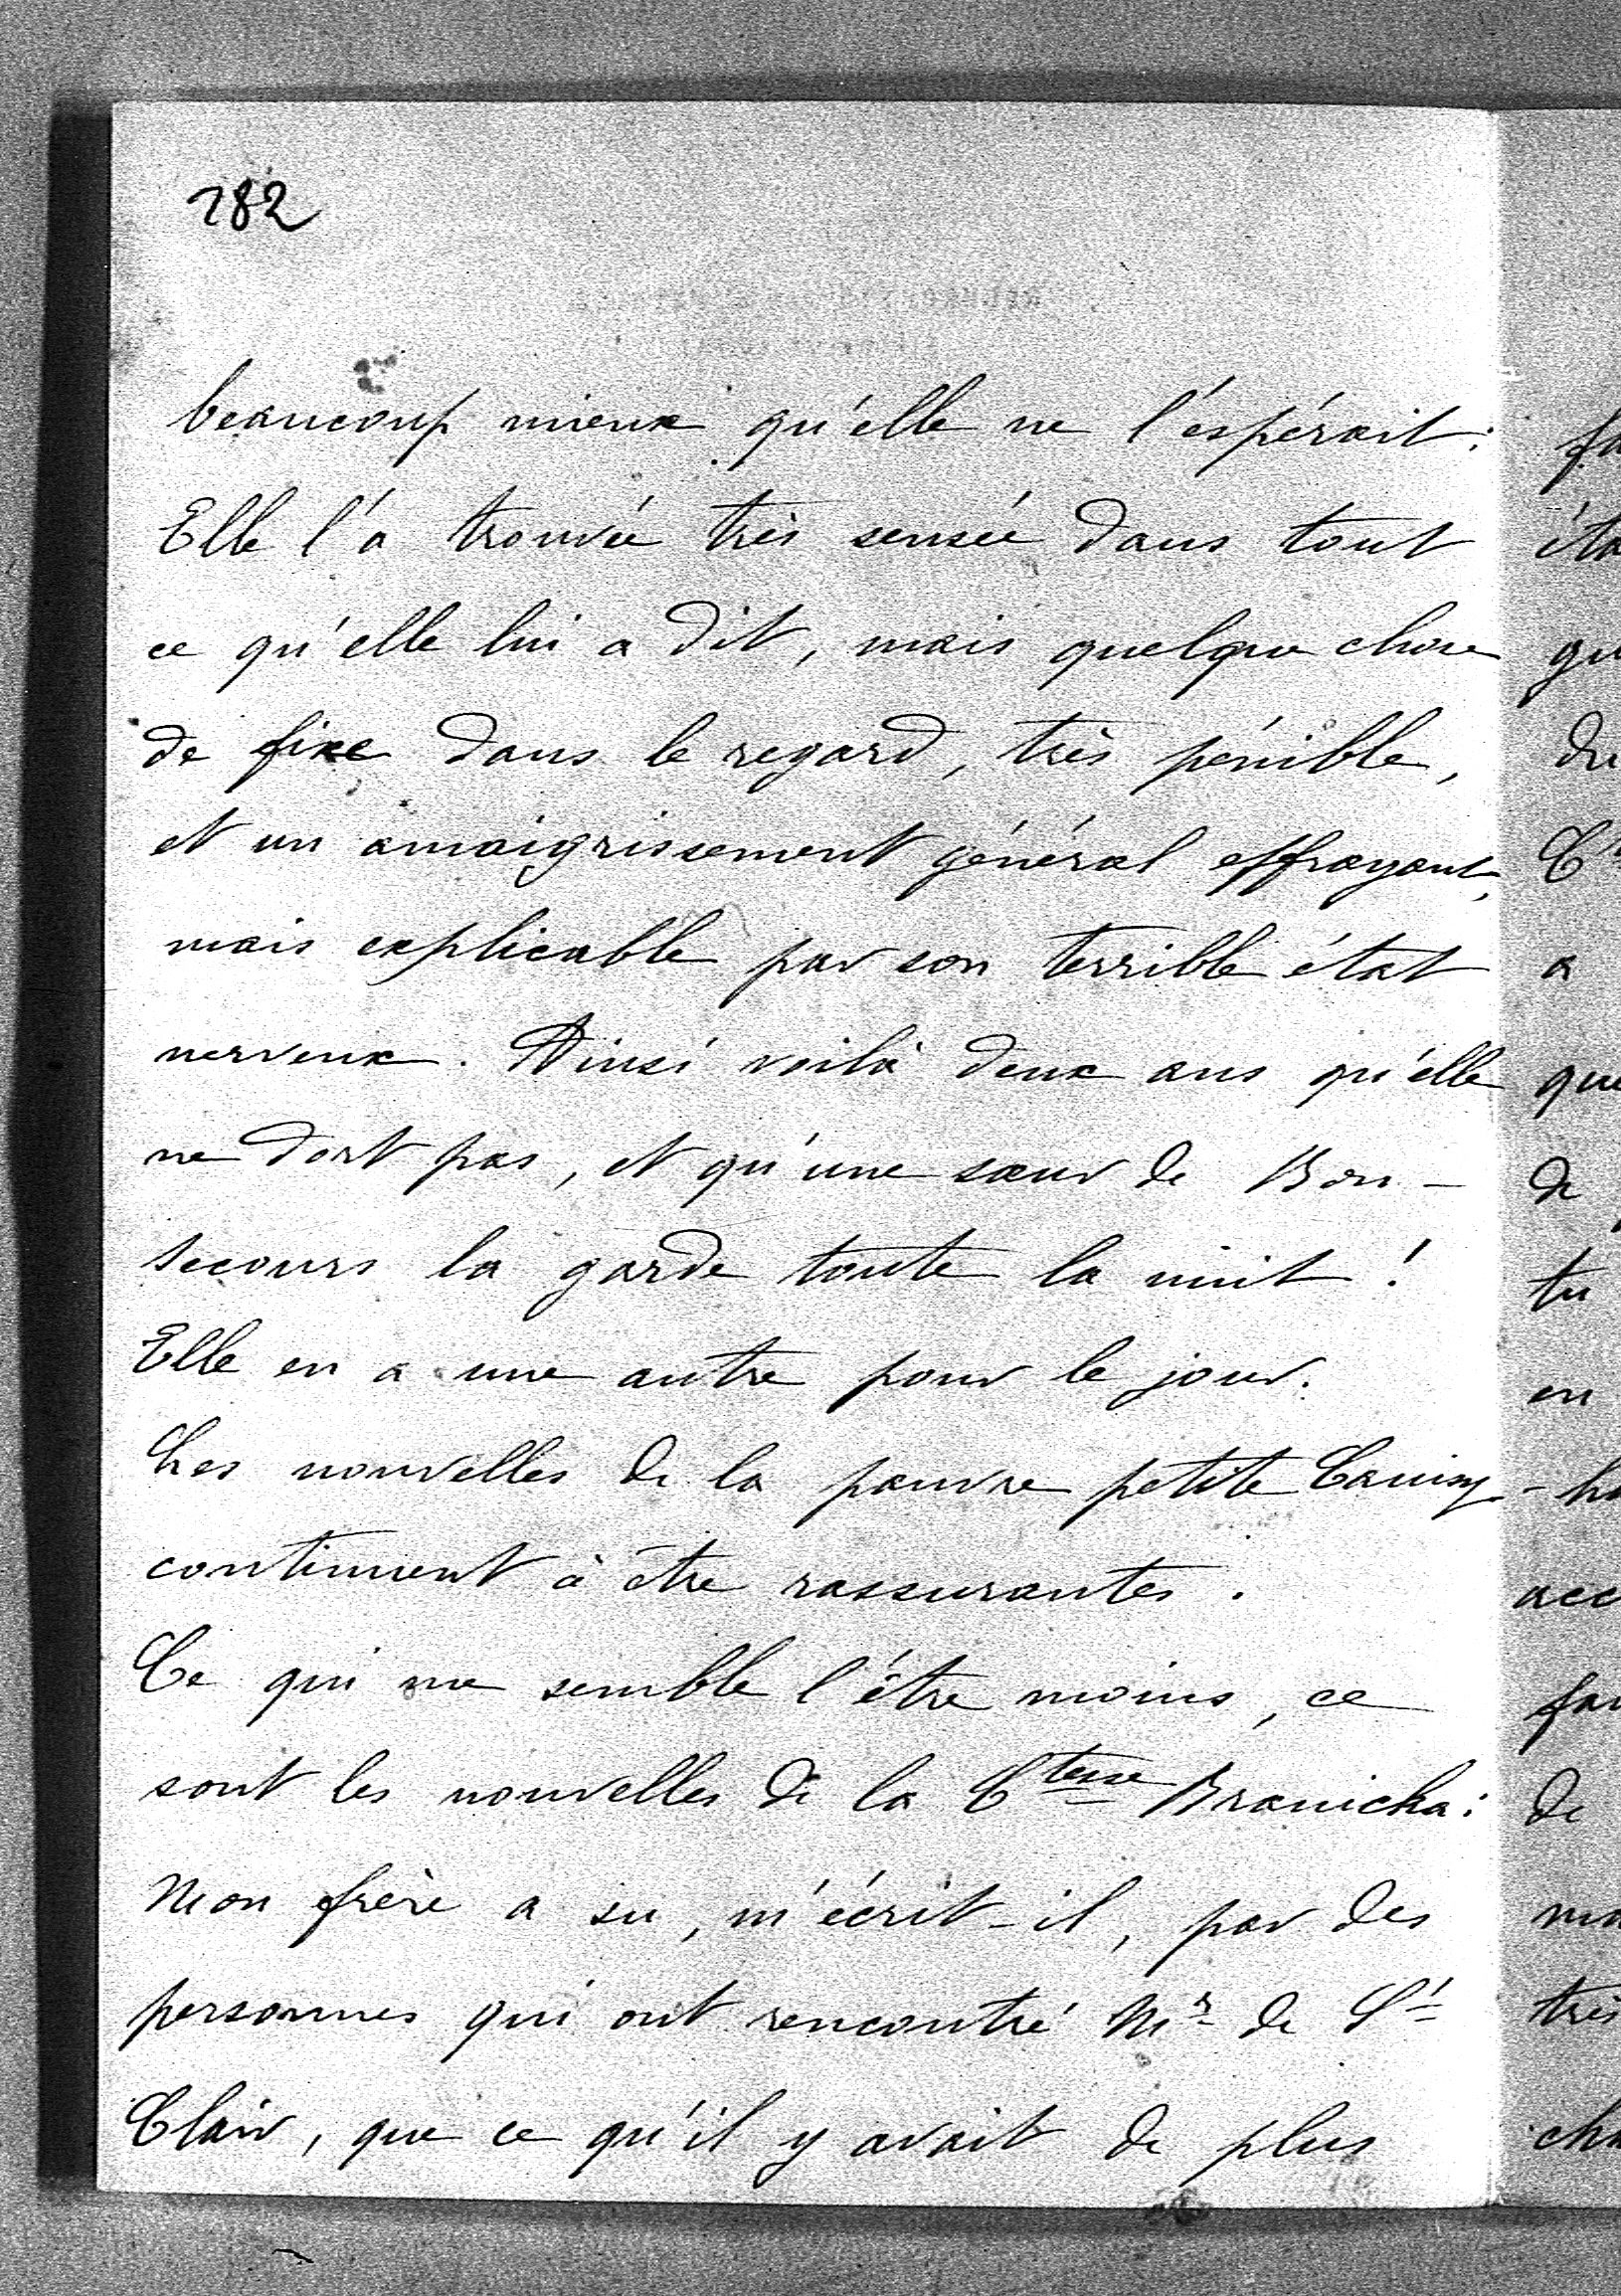 182
beaucoup mieux qu'elle ne l'espérait:
Elle l'a trouvée très sensée dans tout
ce qu'elle lui a dit, mais quelque chose
de fixe dans le regard, très pénible,
et un amaigrissement général effrayant,
mais explicable par son terrible état
nerveux. Ainsi voilà deux ans qu'elle
ne dort pas, et qu'une sœur de Bon-
Secours la garde toute la nuit!
Elle en a une autre pour le jour.
Les nouvelles de la pauvre petite
continuent à être rassurantes.
Ce qui me semble l'être moins, ce
sont les nouvelles de la Ctesse Branicka:
Mon frère a su, m'écrit-il, par des
personnes qui ont rencontré Mr de St
Clair, que ce qu'il y avait de plus